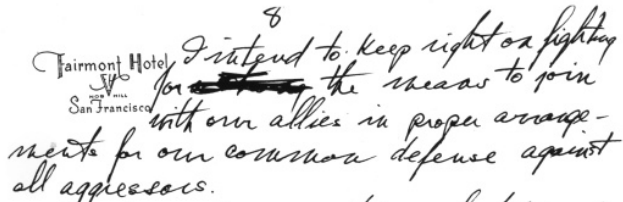 8
Fairmont Hotel
NOB HILL
San Francisco
I intend to keep right on fighting
for the means to join
with our allies in proper arrange-
ments for our common defense against
all aggressors.